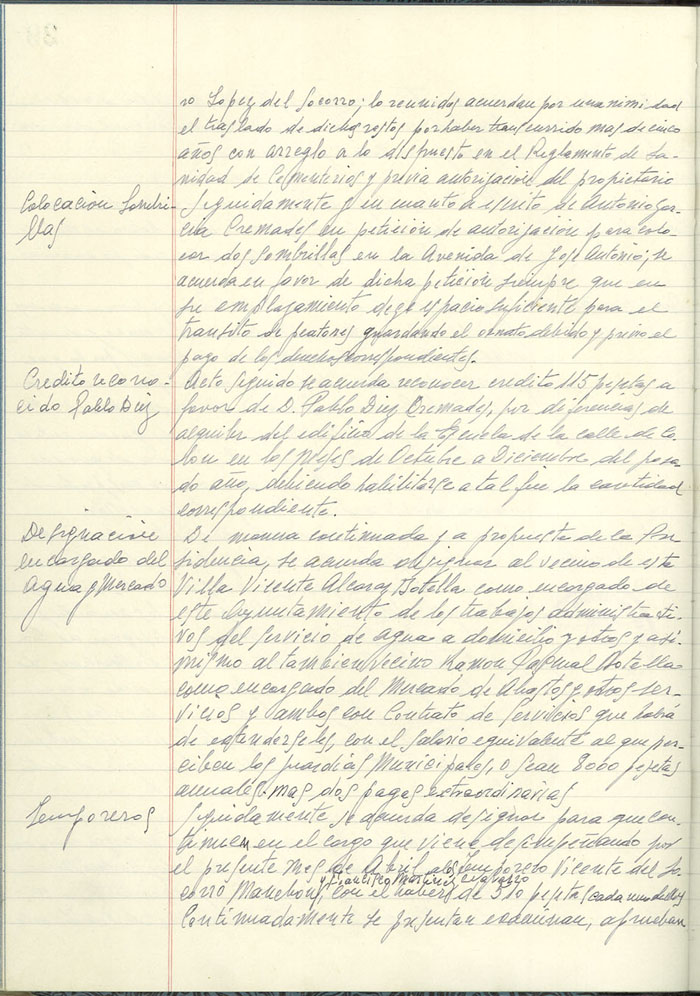 ro Lopez del Socorro; lo reunidos acuerdan por unanimidad
el traslado de dichos restos por haber transcurrido mas de cinco
años con arreglo a lo dispuesto en el Reglamento de Sa-
nidad de Cementerios y previa autorización del propietario
Colocación Sombri-
llas
Seguidamente y en cuanto a escrito de Antonio Gar-
cia Cremades en petición de autorización para colo-
car dos sombrillas en la Avenida de José Antonio, se
acuerda en favor de dicha petición siempre que en
su emplazamiento deje espacio suficiente para el
transito de peatones guardando el ornato debido y previo el
pago de los derechos correspondientes.
Credito recono-
cido Pablo Diez
Acto seguido se acuerda reconocer credito 115 pesetas a
favor de D. Pablo Diez Cremades, por diferencias de
alquiler del edificio de la Escuela de la calle de Co-
lon en los meses de Octubre a Diciembre del pasa-
do año, debiendo habilitarse a tal fin la cantidad
correspondiente.
Designación
encargado del
Agua y Mercado
De manera continuada y a propuesta de la Pre-
sidencia, se acuerda designar al vecino de esta
Villa Vicente Alcaraz Botella como encargado de
este Ayuntamiento de los trabajos administrati-
vos del servicio de agua a domicilio y otros y asi-
mismo al tambien vecino Ramon Pascual Botella
como encargado del Mercado de Abastos y otros ser-
vicios y ambos con Contrato de Servicios que habrá
de extenderseles, con el salario equivalente al que per-
ciben los guardias Municipales, o sean 8000 pesetas
anuales mas dos pagas extraordinarias
Temporeros
Seguidamente se acuerda designar para que con-
tinuen en el cargo que viene desempeñando por
el presente mes de Abril, a los Temporero Vicente del So-
y Francisco Martinez Navarro
corro Manchon, con el haber de 510 pesetas cada uno de ellos
Continuadamente se presentan examinan, aprueban